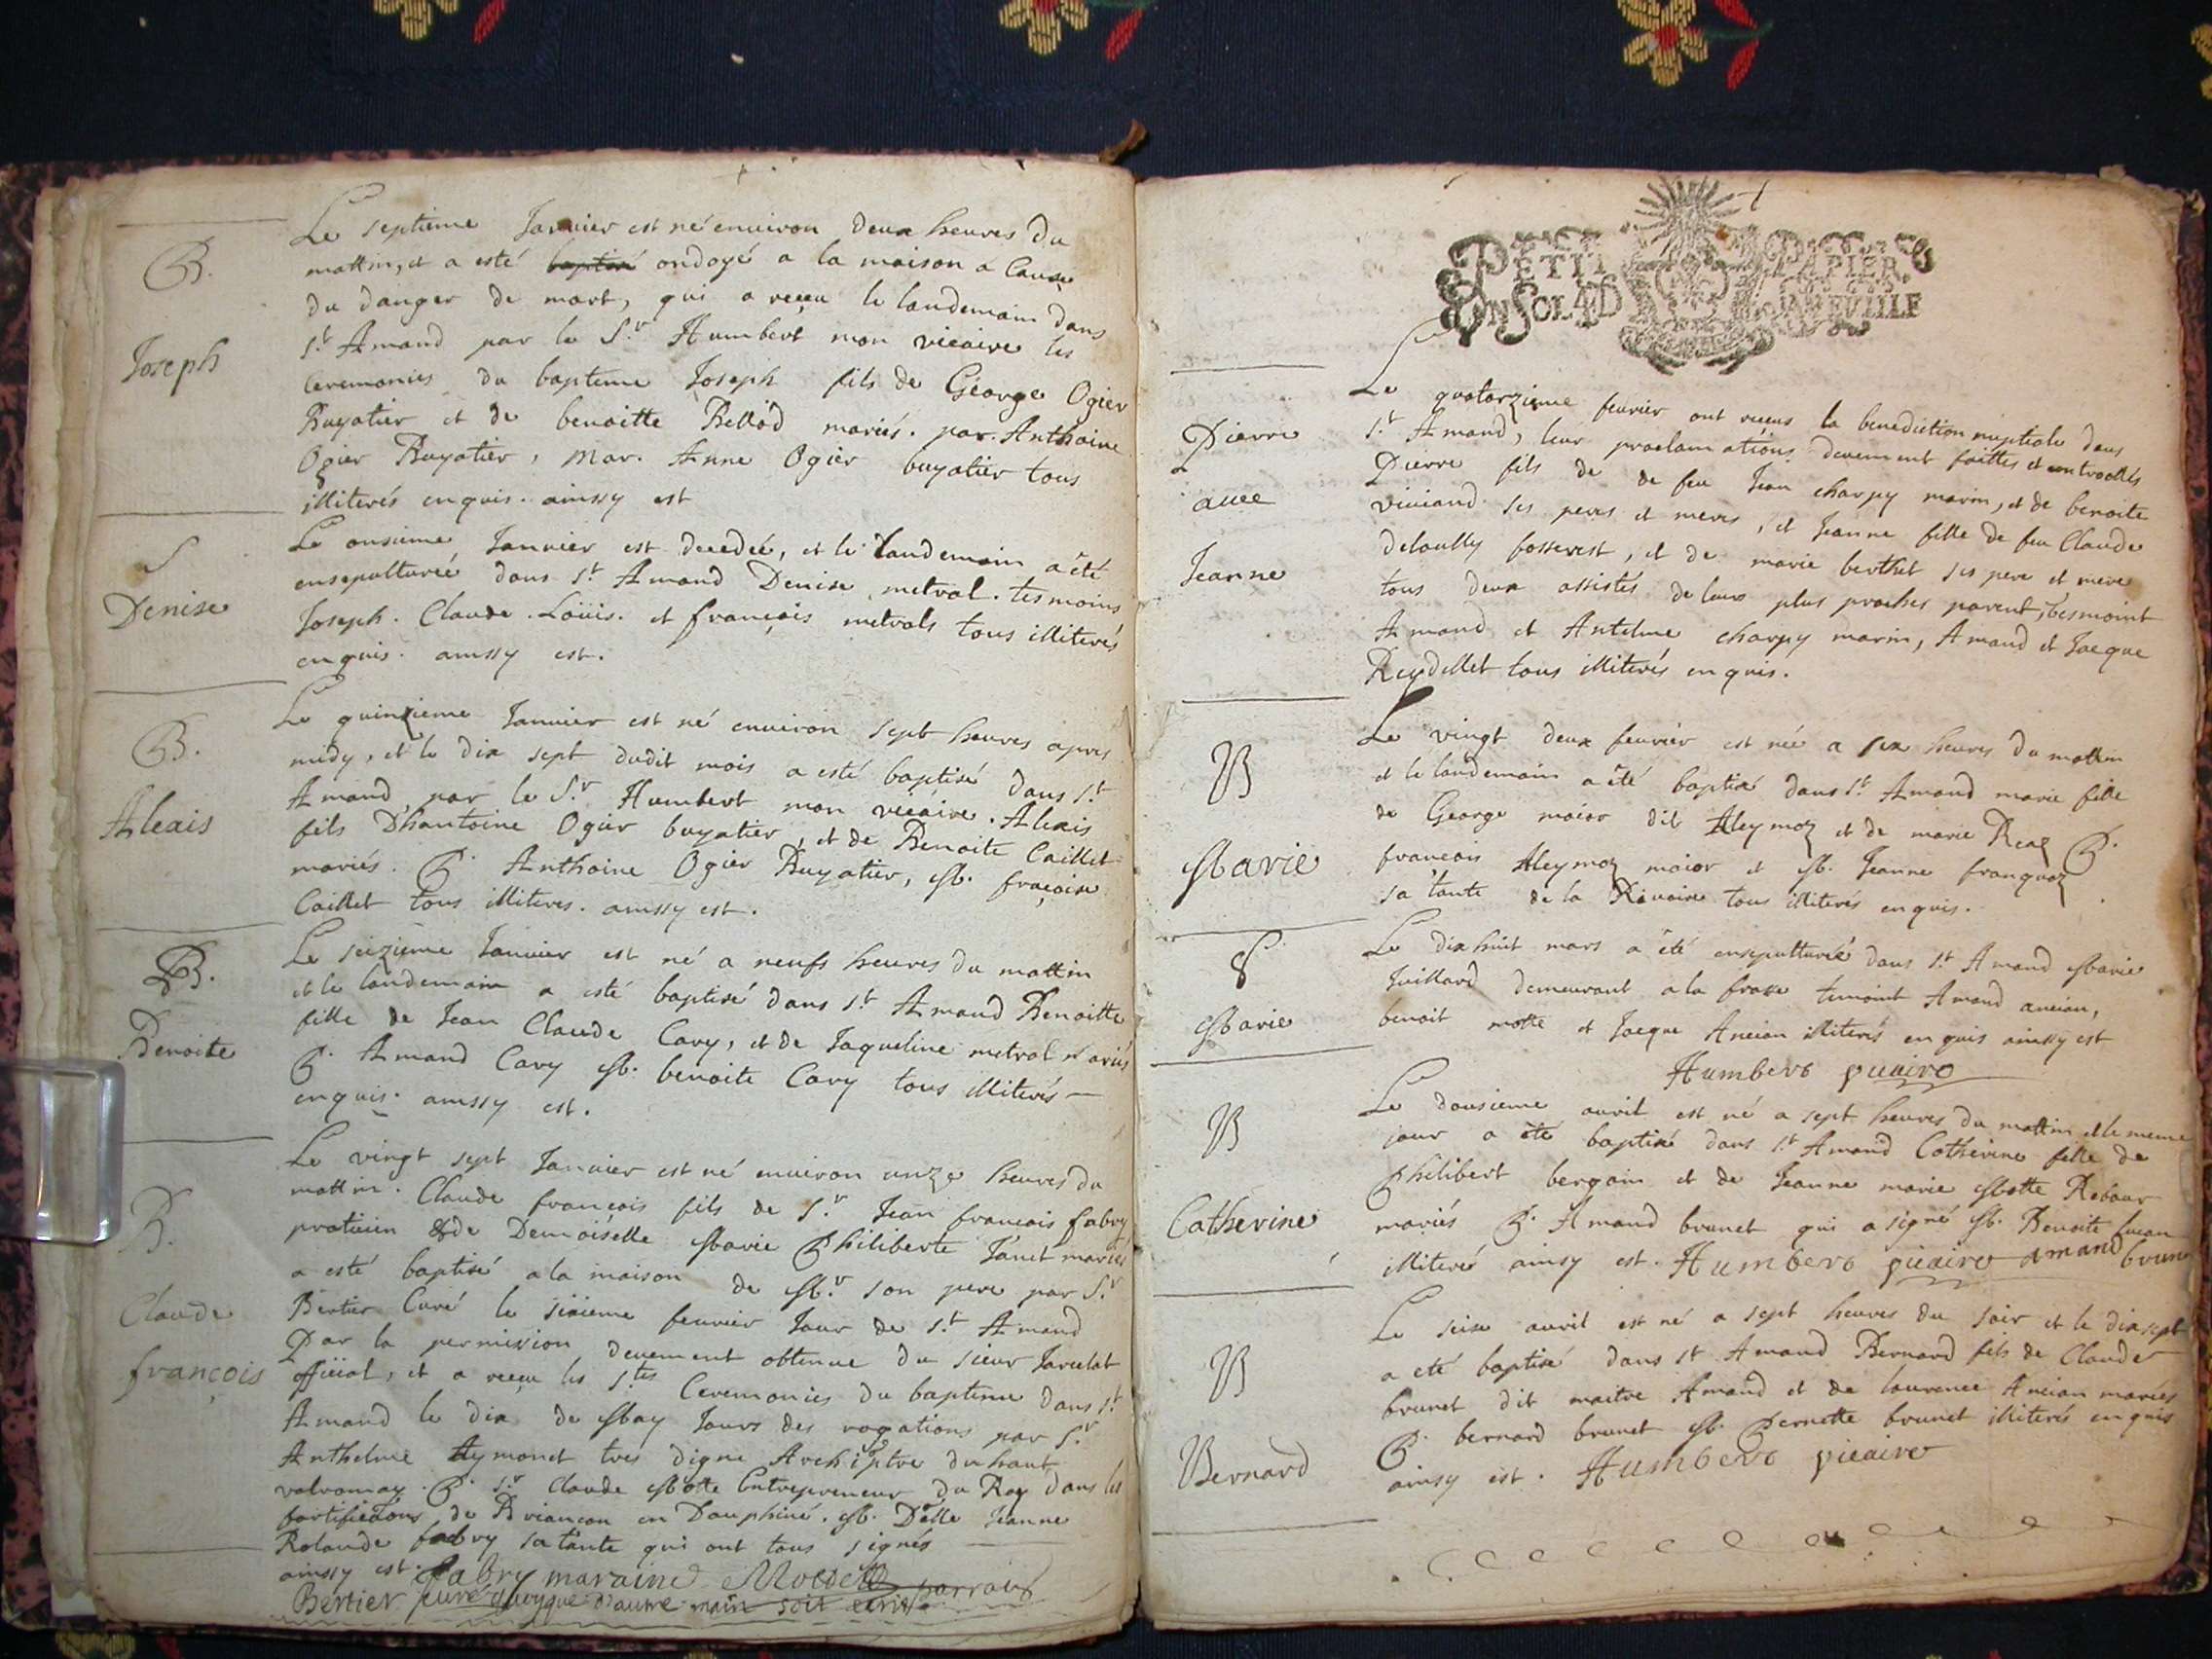 B.
Joseph
Le septieme Januier est né enuiron deux heures du
mattin, et a esté baptisé ondoyé a la maison a Cause
du danger de mort, qui a reçeu le landemain dans
St Amand par le Sr Humbert mon vicaire les
Ceremonies du bapteme Joseph fils de George Ogier
Buyatier et de benoitte Bellod mariés. par. Anthoine
Ogier Buyatier, Mar. Anne Ogier buyatier tous
illiterés enquis. ainssy est
S
Denise
Le onsieme Januier est decedeé, et le landemain a été
ensepultureé dans St Amand Denise metral. tesmoins
Joseph. Claude. Loüis. et françois metrals tous illiterés
enquis. ainssy est.
B.
Alexis
Le quinzieme Januier est né enuiron sept heures apres
midy, et le dix sept dudit mois a esté baptisé dans St
Amand par le Sr Humbert mon viccaire. Alexis
fils Dhantoine Ogier buyatier, et de Benoite Caillet
mariés. P. Anthoine Ogier Buyatier, M. fraçoise
Caillet tous illiteres. ainssy est.
B.
Benoite
Le seizieme Januier est né a neufs heures du mattin
et le landemain a esté baptisé dans St Amand Benoitte
fille de Jean Claude Cary, et de Jaqueline metral mariés
P. Amand Cary M. benoite Cary tous illiterés
enquis. ainssy est.
B.
Claude
françois
Le vingt sept Januier est né enuiron unze heures du
mattin. Claude françois fils de Sr Jean françois fabry
praticien & de Demoiselle Marie Philiberte Janet mariés
a esté baptisé a la maison de Mr son pere par Sr
Bertier Curé le sixieme feurier Jour de St Amand
Par la permission deuement obtenue du sieur Jarcelat
official, et a reçeu les Stes Ceremonies du bapteme dans St
Amand le dix de May Jours des rogations par Sr
Anthelme Aymonet tres digne Archiptre du haut
valromay. P. Sr Claude Motte Entrepreneur du Roy dans les
fortifications de Briancon en Dauphiné. M. Delle Jeanne
Rolande fabry sa tante qui ont tous signés
ainssy est. fabry maraine parrain
Bertier curé quoyque d'autre main soit ecrit
PETIT PAPIER
UN SOL 4 D LA FEUILLE
Pierre
auec
Jeanne
Le quatorzieme feurier ont reçeus la benediction nuptiale dans
St Amand, leur proclamations deuement faittes et controollés
Pierre fils de de feu Jean charpy marin, et de benoite
viuiand ses peres et meres, et Jeanne fille de feu Claude
delaully fosserest, et de marie berthet ses pere et mere
tous deux assistés de leurs plus proches parent, tesmoint
Amand et Antelme charpy marin, Amand et Jacque
Reydellet tous illiterés enquis.
B
Marie
Le vingt deux feurier est née a six heures du mattin
et le landemain a été baptisé dans St Amand marie fille
de George maior dit Aleymoz et de marie Reaz P.
francois Aleymoz maior et M. Jeanne franquoz
sa tante de la Riuoire tous illiterés enquis.
S
Marie
Le dix huit mars a été ensepultureé dans St Amand Marie
Juillard demeurant a la frasse temoint Amand ancian,
benoit motte et Jacque Ancian illiterés enquis ainssy est
Humbert vicaire
B
Catherine
Le dousieme auril est né a sept heures du mattin et le meme
jour a été baptisé dans St Amand Catherine fille de
Philibert bergoin et de Jeanne marie Motte Rebour
mariés P. Amand brunet qui a signé M. Benoite
illiteré ainsy est. Humbert vicaire amand brunet
B
Bernard
Le seise auril est né a sept heures du soir et le dix sept
a eté baptisé dans St Amand Bernard fils de Claude
brunet dit maitre Amand et de laurence Ancian mariés
P. bernard brunet M. Pernette brunet illiterés enquis
ainsy est. Humbert vicaire